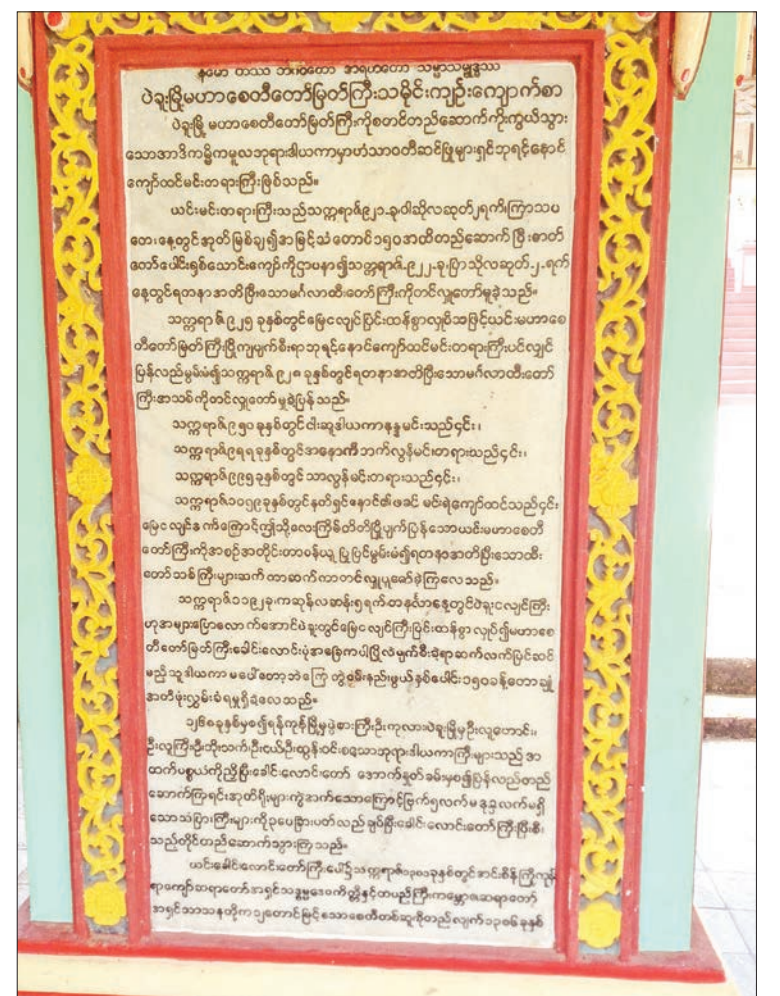 နမော တဿ ဘဂဝတော အရဟတော သမ္မာသမ္ဗုဒ္ဓဿ
ပဲခူးမြို့မဟာစေတီတော်မြတ်ကြီးသမိုင်းကျဉ်းကျောက်စာ
ပဲခူးမြို့ မဟာစေတီတော်မြတ်ကြီးကိုစတင်တည်ဆောက်ကိုးကွယ်သွား
သောအာဒိကမ္မိကမူလဘုရားဒါယကာမှာဟံသာဝတီဆင်ဖြူများရှင်ဘုရင့်နောင်
ကျော်ထင်မင်းတရားကြီးဖြစ်သည်။
ယင်းမင်းတရားကြီးသည်သက္ကရာဇ်၉၂၁-ခု၊ဝါဆိုလဆုတ်၂ရက်၊ကြာသပ
တေးနေ့တွင်အုတ်မြစ်ချ၍အမြင့်သံတောင်၁၅၀အထိတည်ဆောက်ပြီးဓာတ်
တော်ပေါင်းရှစ်သောင်းကျော်ကိုဌာပနာ၍သက္ကရာဇ်-၉၂၂-ခု၊ပြာသိုလဆုတ်-၂-ရက်
နေ့တွင်ရတနာအတိပြီးသောမင်္ဂလာထီးတော်ကြီးကိုတင်လှူတော်မူခဲ့သည်။
သက္ကရာဇ်၉၂၅ခုနှစ်တွင်မြေငလျင်ပြင်းထန်စွာလှုပ်သဖြင့်ယင်းမဟာစေ
တီတော်မြတ်ကြီးပြိုကျပျက်စီးရာဘုရင့်နောင်ကျော်ထင်မင်းတရားကြီးပင်လျှင်
ပြန်လည်မွမ်းမံ၍သက္ကရာဇ်၉၂၈ခုနှစ်တွင်ရတနာအတိပြီးသောမင်္ဂလာထီးတော်
ကြီးအသစ်ကိုတင်လှူတော်မူခဲ့ပြန်သည်။
သက္ကရာဇ်၉၅၀ခုနှစ်တွင်ငါးဆူဒါယကာနန္ဒမင်းသည်၎င်း၊
သက္ကရာဇ်၉၇၇ခုနှစ်တွင်အနောက်ဘက်လွန်မင်းတရားသည်၎င်း၊
သက္ကရာဇ်၉၉၅ခုနှစ်တွင်သာလွန်မင်းတရားသည်၎င်း၊
သက္ကရာဇ်၁၀၅၉ခုနှစ်တွင်နတ်ရှင်နောင်၏ဖခင် မင်းရဲကျော်ထင်သည်၎င်း
မြေငလျင်ဒဏ်ကြောင့်ဤသို့လေးကြိမ်တိတိပြိုပျက်ပြန်သောယင်းမဟာစေတီ
တော်ကြီးကိုအစဉ်အတိုင်းတာဝန်ယူ ပြုပြင်မွမ်းမံ၍ရတနာအတိပြီးသောထီး
တော်သစ်ကြီးများဆက်ကာဆက်ကာတင်လှူပူဇော်ခဲ့ကြလေသည်။
သက္ကရာဇ်၁၁၉၂ခု၊ကဆုန်လဆန်း၅ရက်တနင်္လာနေ့တွင်ပဲခူးငလျင်ကြီး
ဟုအများပြောလောက်အောင်ပဲခူးတွင်မြေငလျင်ကြီးပြင်းထန်စွာလှုပ်၍မဟာစေ
တီတော်မြတ်ကြီးခေါင်းလောင်းပုံအခြေကပါပြိုလဲပျက်စီးခဲ့ရာဆက်လက်ပြင်ဆင်
မည့်သူဒါယကာ မပေါ်တော့ဘဲ နှစ်ပေါင်း၁၅၀ခန့်တောချုံ
အတိဖုံးလွှမ်းခံရမှုရှိခဲ့လေသည်။
ခုနှစ်မှစ၍ရန်ကုန်မြို့မှပွဲစားကြီးဦးကုလား၊ပဲခူးမြို့မှဦးလူဟောင်း၊
ဦးလူကြီး၊ဦးဘိုးသက်၊ဦးငယ်၊ဦးထွန်းဝင်းစသောဘုရားဒါယကာကြီးများသည် အ
ထက်ပစ္စယံကိုညှိပြီးခေါင်းလောင်းတော် အောက်နှုတ်ခမ်းမှစ၍ပြန်လည်တည်
ဆောက်ကြရင်းအုတ်ရိုးများကွဲအက်သောကြောင့်
ခေါင်းလောင်းတော်ကြီးပြီးစီး
သည့်တိုင်တည်ဆောက်သွားကြသည်။
ယင်းခေါင်းလောင်းတော်ကြီးပေါ်၌သက္ကရာဇ် ခုနှစ်တွင်အင်းစိန်